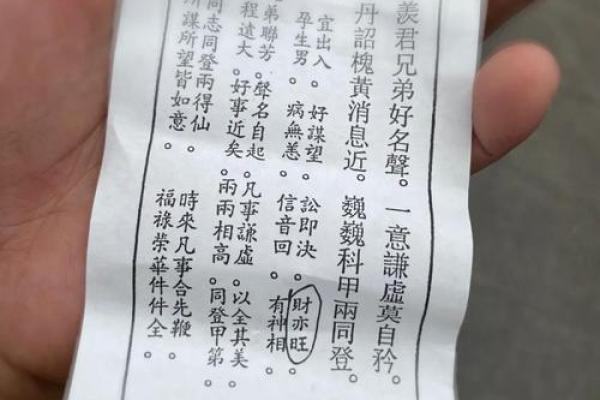 羨君兄弟好名聲。一意謙虛莫自矜。
丹詔槐黃消息近。巍巍科甲兩同登。
宜出入 好謀望 訟即決 財亦旺
孕生男。病無恙。信音回。有神相。
弟聯芳。聲名自起。凡事謙虛。以全其美。
程遠大。好事近矣。兩兩相高。同登甲第。
同志同登兩得仙。時來凡事合先鞭。
所謀所望皆如意。福祿榮華件件全。